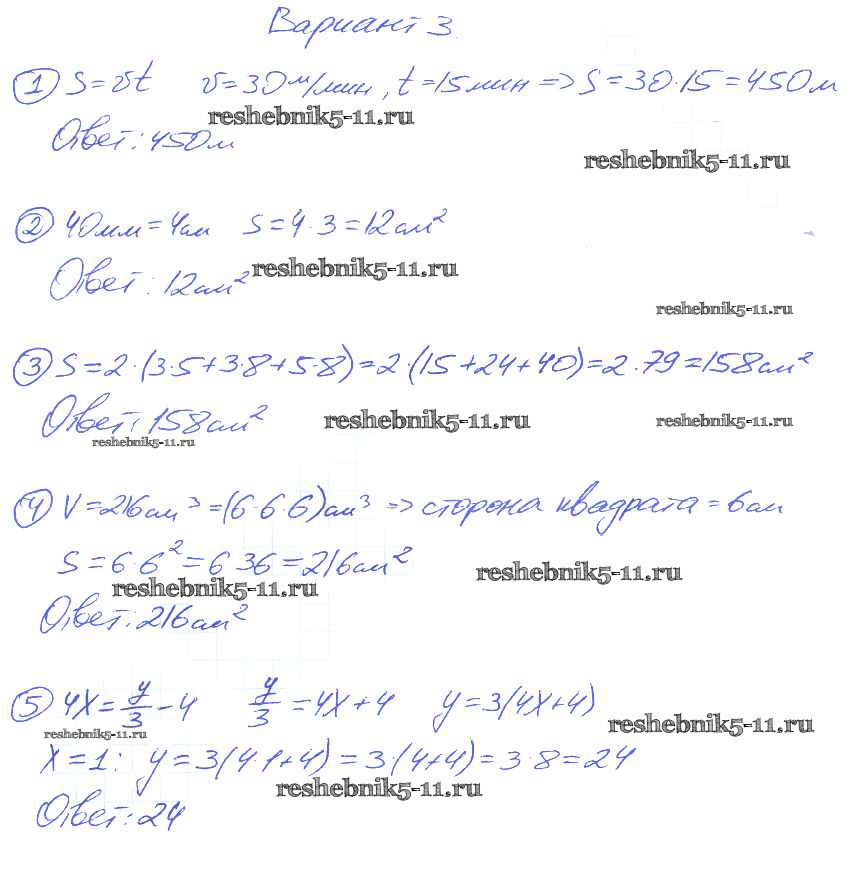 Вариант 3
1 S=vt v=30 м/мин, t=15 мин => S=30·15=450м
reshebnik5-11.ru
Ответ: 450м
reshebnik5-11.ru
2 40мм=4см S=4·3=12см²
Ответ: 12см²
reshebnik5-11.ru
reshebnik5-11.ru
3 S=2·(3·5+3·8+5·8)=2·(15+24+40)=2·79=158см²
Ответ: 158см²
reshebnik5-11.ru
reshebnik5-11.ru
reshebnik5-11.ru
4 V=216см³=(6·6·6)см³ => сторона квадрата=6см
S=6·6²=6·36=216см²
reshebnik5-11.ru
reshebnik5-11.ru
Ответ: 216см²
5 4x=y/3-4 y/3=4x+4 y=3(4x+4)
reshebnik5-11.ru
reshebnik5-11.ru
x=1: y=3(4·1+4)=3·(4+4)=3·8=24
reshebnik5-11.ru
Ответ: 24